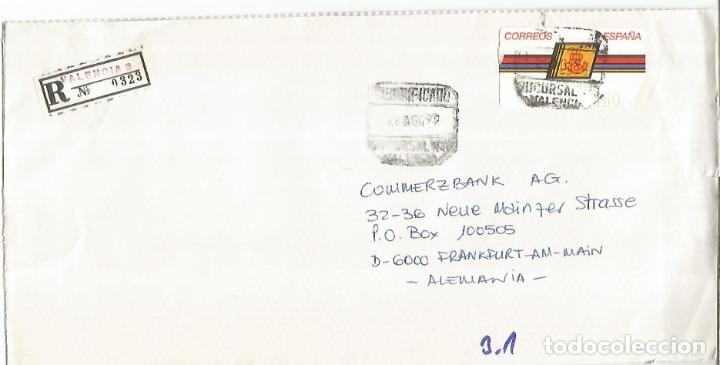 CORREOS ESPAÑA
VALENCIA 2
R Nº 0323
SUCURSAL
VALENCIA
CERTIFICADO
AGO 92
SUCURSAL
COMMERZBANK AG.
32-36 Neue Mainzer Strasse
P.O. Box 100505
D-6000 FRANKFURT-AM-MAIN
- ALEMANIA -
3.1
todocoleccion